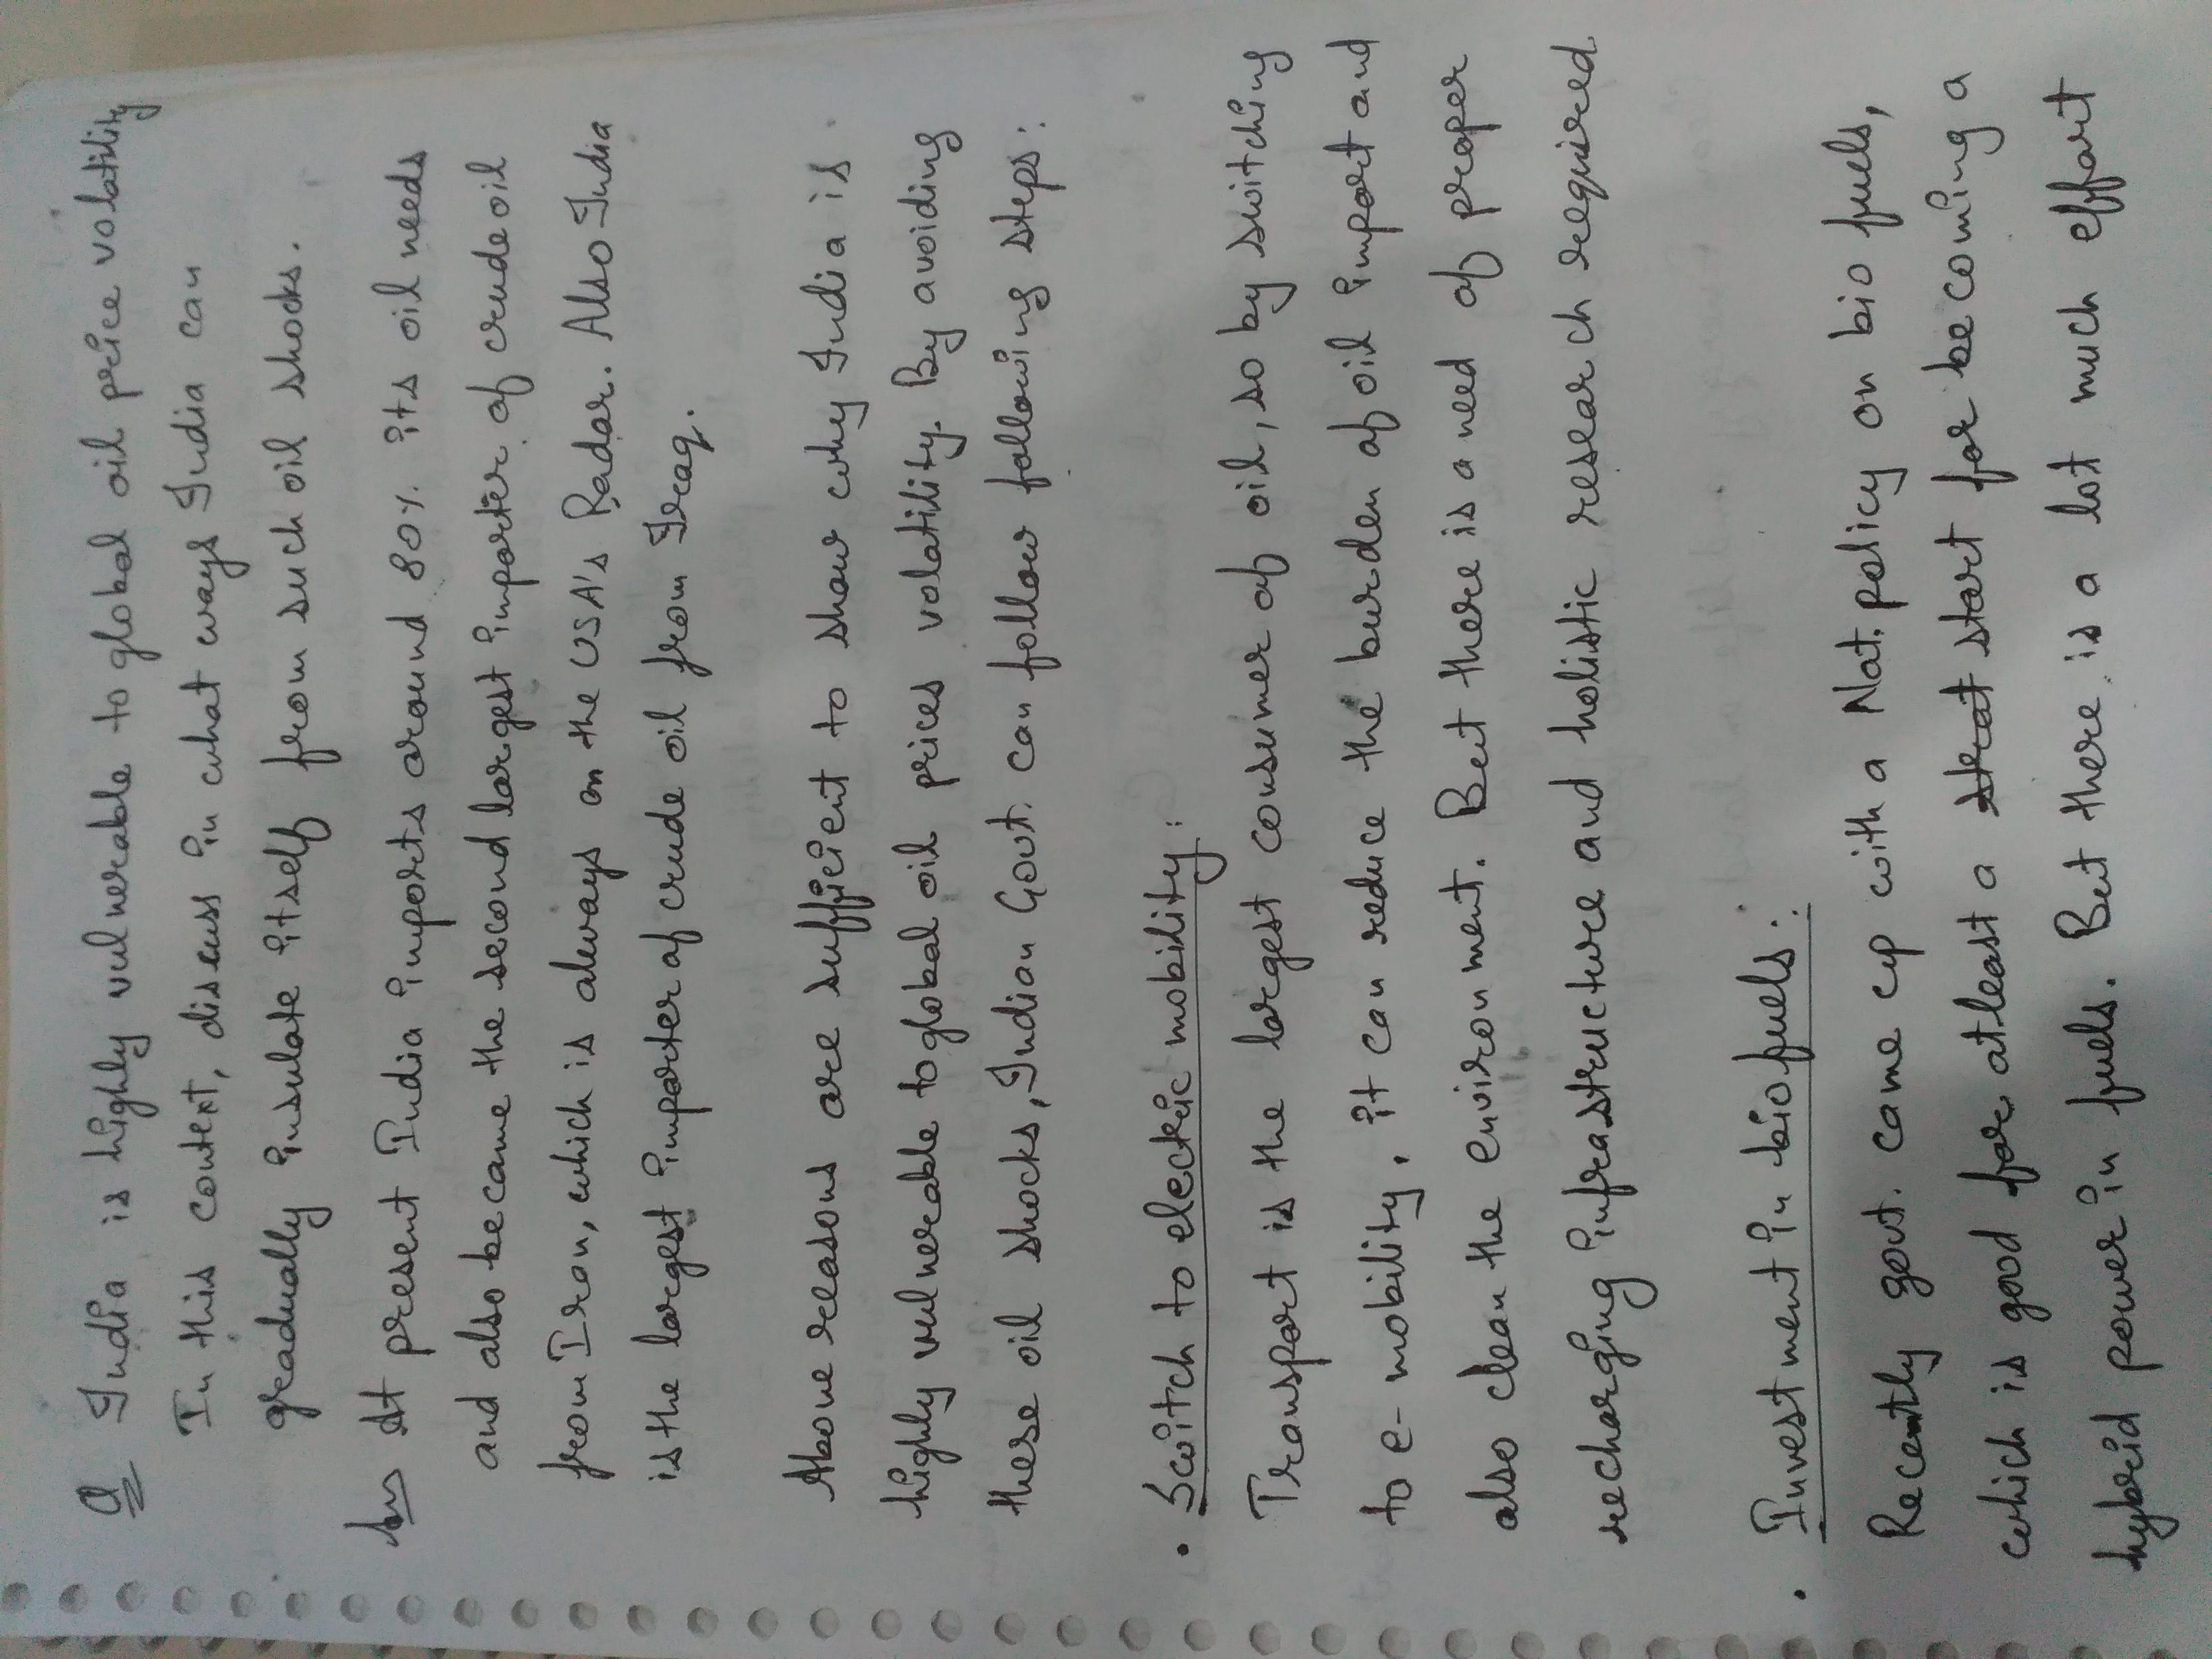 Q India is highly vulnerable to global oil price volatility
In this context, discuss in what ways India can
gradually insulate itself from such oil shocks.
Ans At present India imports around 80% its oil needs
and also became the second largest importer of crude oil
from Iran, which is always on the USA's Radar. Also India
is the largest importer of crude oil from Iraq.
Above reasons are sufficient to show why India is
highly vulnerable to global oil prices volatility. By avoiding
these oil shocks, Indian Govt. can follow following steps:
• Switch to electric mobility:
Transport is the largest consumer of oil, so by switching
to e-mobility, it can reduce the burden of oil import and
also clean the environment. But there is a need of proper
recharging infrastructure and holistic research required
• Investment in bio fuels:
Recently govt. came up with a Nat. policy on bio fuels,
which is good for atleast a strat start for becoming a
hybrid power in fuels. But there is a lot much effort